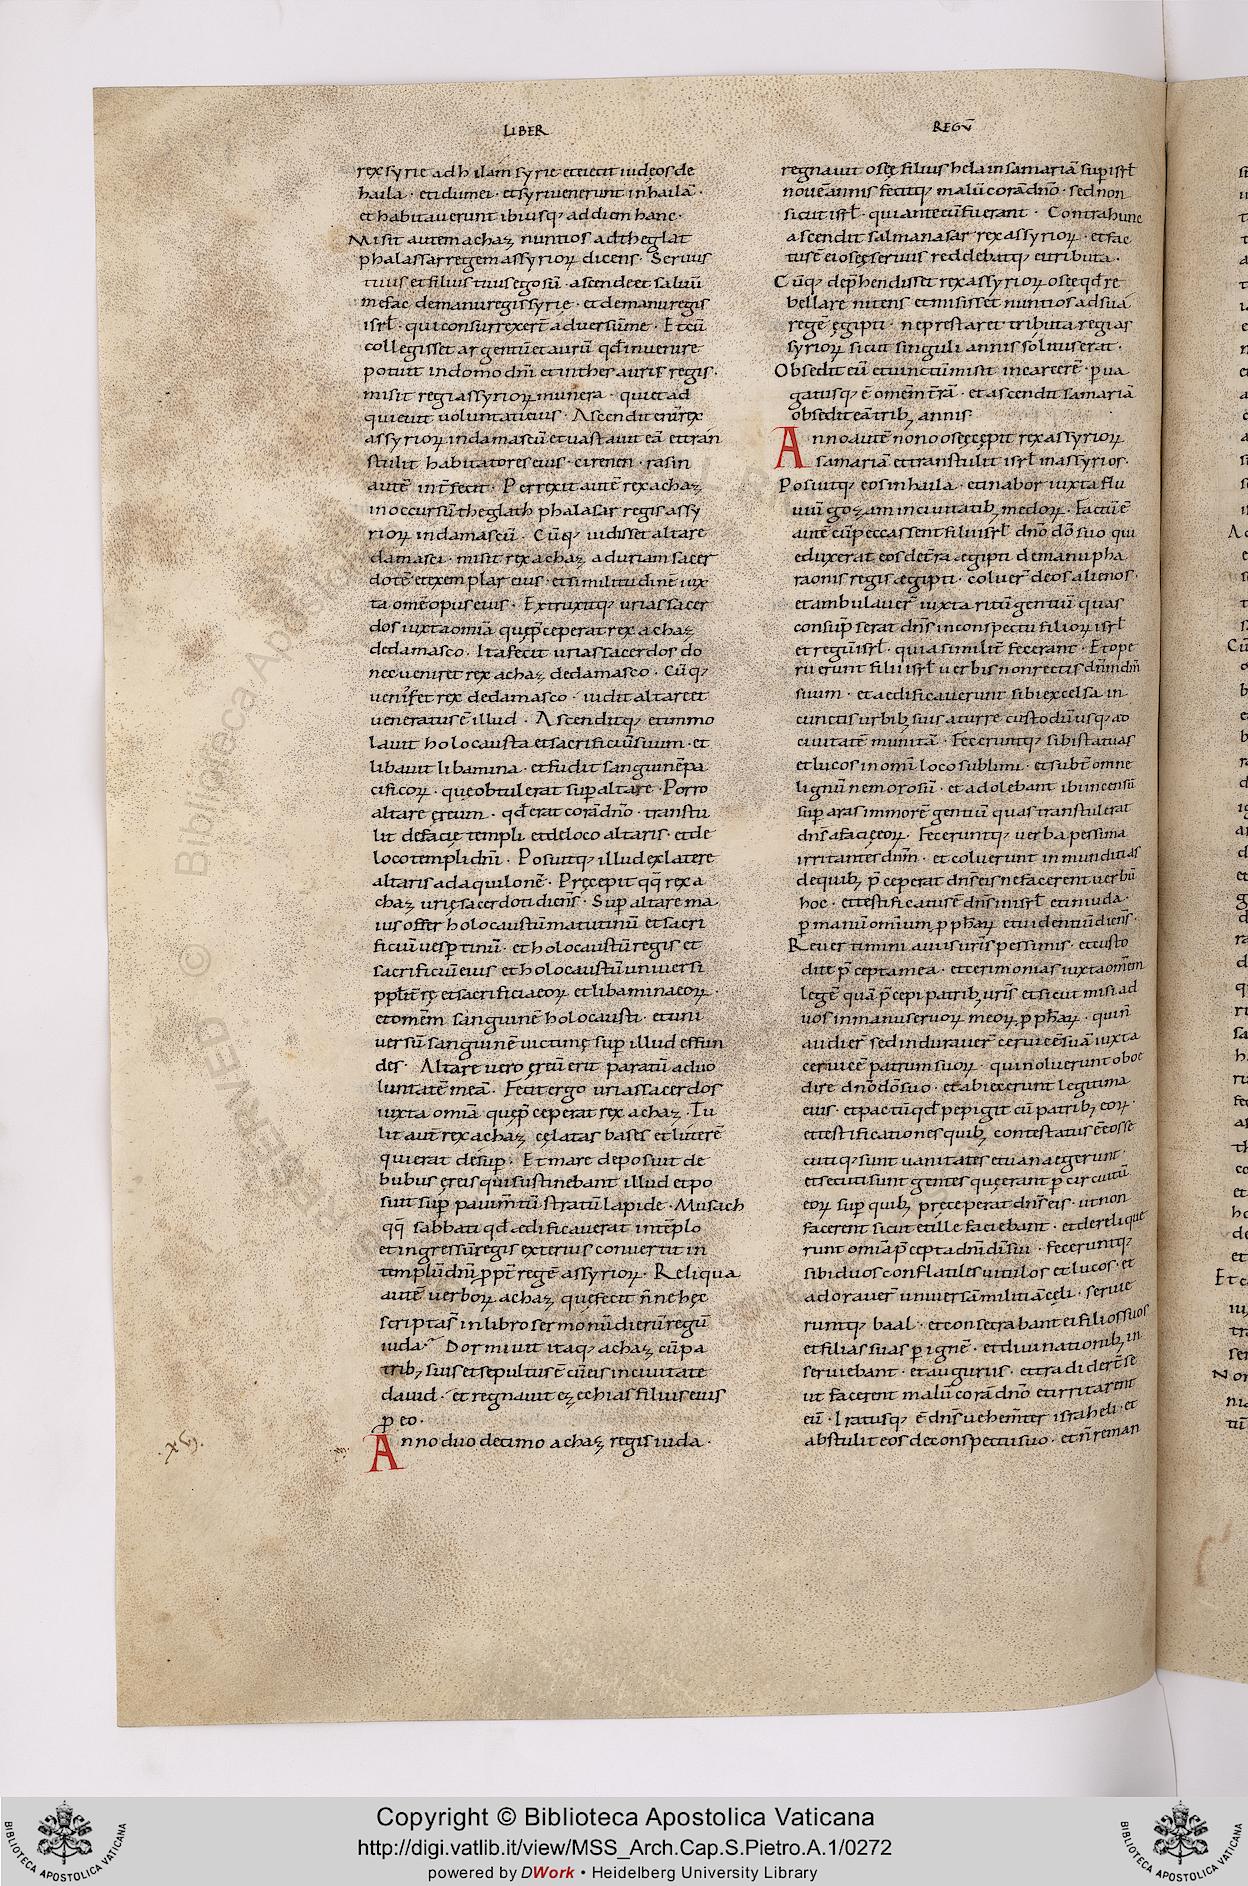 LIBER
rex syrie ad hilam syrie et eiecit iudeos de
haila · et idumei · et syri uenerunt in hailā ·
et habitauerunt ibi usq; ad diem hanc ·
Misit autem achaz nuntios ad theglat
phalassar regem assyrioꝝ dicens · Seruus
tuus et filius tuus ego sū · ascende et saluū
me fac de manu regis syrie · et de manu regis
isrł · qui consurrexer̄t aduersū me · Et cū
collegisset argentū et aurū qđ inuenire
potuit in domo dn̄i et in thesauris regis ·
misit regi assyrioꝝ munera · qui et ad
quieuit uoluntati eius · Ascendit eni᷒ rex
assyrioꝝ in damascū et uastauit eā et tran
stulit habitatores eius · cirenen · rasin
autē int̄fecit · Perrexit autē rex achaz
in occursū theglath phalasar regis assy
rioꝝ in damascū · Cūq; uidisset altare
damasci · misit rex achaz ad uriam sacer
dotē et exemplar eius · et similitudinē iux
ta omē opus eius · Extruxitq; urias sacer
dos iuxta omīa quę p̄ceperat rex achaz
de damasco · Ita fecit urias sacerdos do
nec ueniret rex achaz de damasco · Cūq;
uenisset rex de damasco · uidit altare et
ueneratus ē illud · Ascenditq; et immo
lauit holocausta et sacrificiū suum · et
libauit libamina · et fudit sanguinē pa
cificoꝝ · quę obtulerat sup̄ altare · Porro
altare ęreum · qđ erat corā dn̄o · transtu
lit de facię templi et de loco altaris · et de
loco templi dn̄i · Posuitq; illud ex latere
altaris ad aquilonē · Pręcepit qq̄ rex a
chaz urię sacerdoti dicens · Sup̄ altare ma
ius offer holocaustū matutinū et sacri
ficiū uesp̱tinū · et holocaustū regis et
sacrificiū eius et holocaustū uniuersi
pp̄li t̄rę et sacrificia eoꝝ et libamina eoꝝ ·
et omēm sanguinē holocausti · et uni
uersū sanguinē uictimę sup̄ illud effun
des · Altare uero ęreū erit paratū ad uo
luntatē meā · Fecit ergo urias sacerdos
iuxta omīa quę p̄ceperat rex achaz · Tu
lit aut̄ rex achaz cęlatas bases et luterē
qui erat desup̄ · Et mare deposuit de
bubus ęreis qui sustinebant illud et po
suit sup̄ pauim̄tū stratū lapide · Musach
qq̄ sabbati qđ aedificauerat in tēplo
et ingressū regis exterius conuertit in
templū dn̄i ꝓpt̄ regē assyrioꝝ · Reliqua
autē uerboꝝ achaz quę fecit n̄ne hęc
scripta s̄ in libro sermonū dierū regū
iuda · Dormiuit itaq; achaz cū pa
trib; suis et sepultus ē cū eis in ciuitate
dauid · et regnauit ezechias filius eius
p̱ eo ·
Anno duodecimo achaz regis iuda ·
REGŪ
regnauit oseę filius hela in samariā sup̄ isrł
nouē annis fecitq; malū corā dn̄o · sed non
sicut isrł · qui ante eū fuerant · Contra hunc
ascendit salmanasar rex assyrioꝝ · et fac
tus ē ei oseę seruus reddebatq; ei tributa ·
Cūq; dep̄hendisset rex assyrioꝝ oseę qđ re
bellare nitens et misisset nuntios ad sua
regē ęgipti · ne prestaret tributa regi as
syrioꝝ sicut singulis annis solitus erat ·
Obsedit eū et uinctū misit in carcerē · p̱ua
gatusq; ē omēm t̄rā · et ascendit samariā
obsedit eā trib; annis
Anno autē nono oseę cępit rex assyrioꝝ
samariā et transtulit isrł in assyrios ·
Posuitq; eos in haila · et in abor iuxta flu
uiū gozam in ciuitatib; medoꝝ · Factū ē
autē cū peccassent filii isrł dn̄o dō suo qui
eduxerat eos de t̄ra aegipti de manu pha
raonis regis aegipti · coluer̄ deos alienos ·
et ambulauer̄ iuxta ritū gentiū quas
consup̄serat dn̄s in conspectu filioꝝ isrł
et regū isrł · quia similit̄ fecerant · Et ope
ruerunt filii isrł uerbis non rectis dn̄m dm̄
suum · et aedificauerunt sibi excelsa in
cunctis urbib; suis a turre custodū usq; ad
ciuitatē munitā · Feceruntq; sibi statuas
et lucos in omī loco sublimi · et subt̄ omne
lignū nemorosū · et adolebant ibi incensū
sup̄ aras in morē gentiū quas transtulerat
dn̄s a facię eoꝝ · Feceruntq; uerba pessima
irritantes dn̄m · et coluerunt inmunditias
de quib; p̄ceperat dn̄s eis ne facerent uerbū
hoc · et testificatus ē dn̄s in isrł et in iuda ·
p̱ manū omīum ꝓph̄aꝝ et uidentiū dicens ·
Reuertimini a uiis uris̄ pessimis · et custo
dite p̄cepta mea · et cerimonias iuxta omēm
legē quā p̄cepi patrib; uris̄ et sicut misi ad
uos in manu seruoꝝ meoꝝ ꝓph̄aꝝ · qui n̄
audier̄ sed indurauer̄ ceruicē suā iuxta
ceruicē patrum suoꝝ · qui noluerunt oboe
dire dn̄o dō suo · et abiecerunt legitima
eius · et pactū qđ pepigit cū patrib; eoꝝ ·
et testificationes quib; contestatus ē eos se
cutiq; sunt uanitates et uana egerunt ·
et secuti sunt gentes quę erant p̱ circuitū
eoꝝ sup̄ quib; pręceperat dn̄s eis · ut non
facerent sicut et ille faciebant · et derelique
runt omīa p̄cepta dn̄i dī sui · feceruntq;
sibi duos conflatiles uitulos et lucos · et
adorauer̄ uniuersā militiā cęli · seruie
runtq; baal · et consecrabant ei filios suos
et filias suas p̱ ignē · et diuinationib; in
seruiebant · et auguriis · et tradider̄t se
ut facerent malū corā dn̄o et irritarent
eū · Iratusq; ē dn̄s uehem̄ter israheli · et
abstulit eos de conspectu suo · et n̄ reman
Copyright © Biblioteca Apostolica Vaticana
http://digi.vatlib.it/view/MSS_Arch.Cap.S.Pietro.A.1/0272
powered by DWork • Heidelberg University Library
BIBLIOTECA APOSTOLICA VATICANA
BIBLIOTECA APOSTOLICA VATICANA